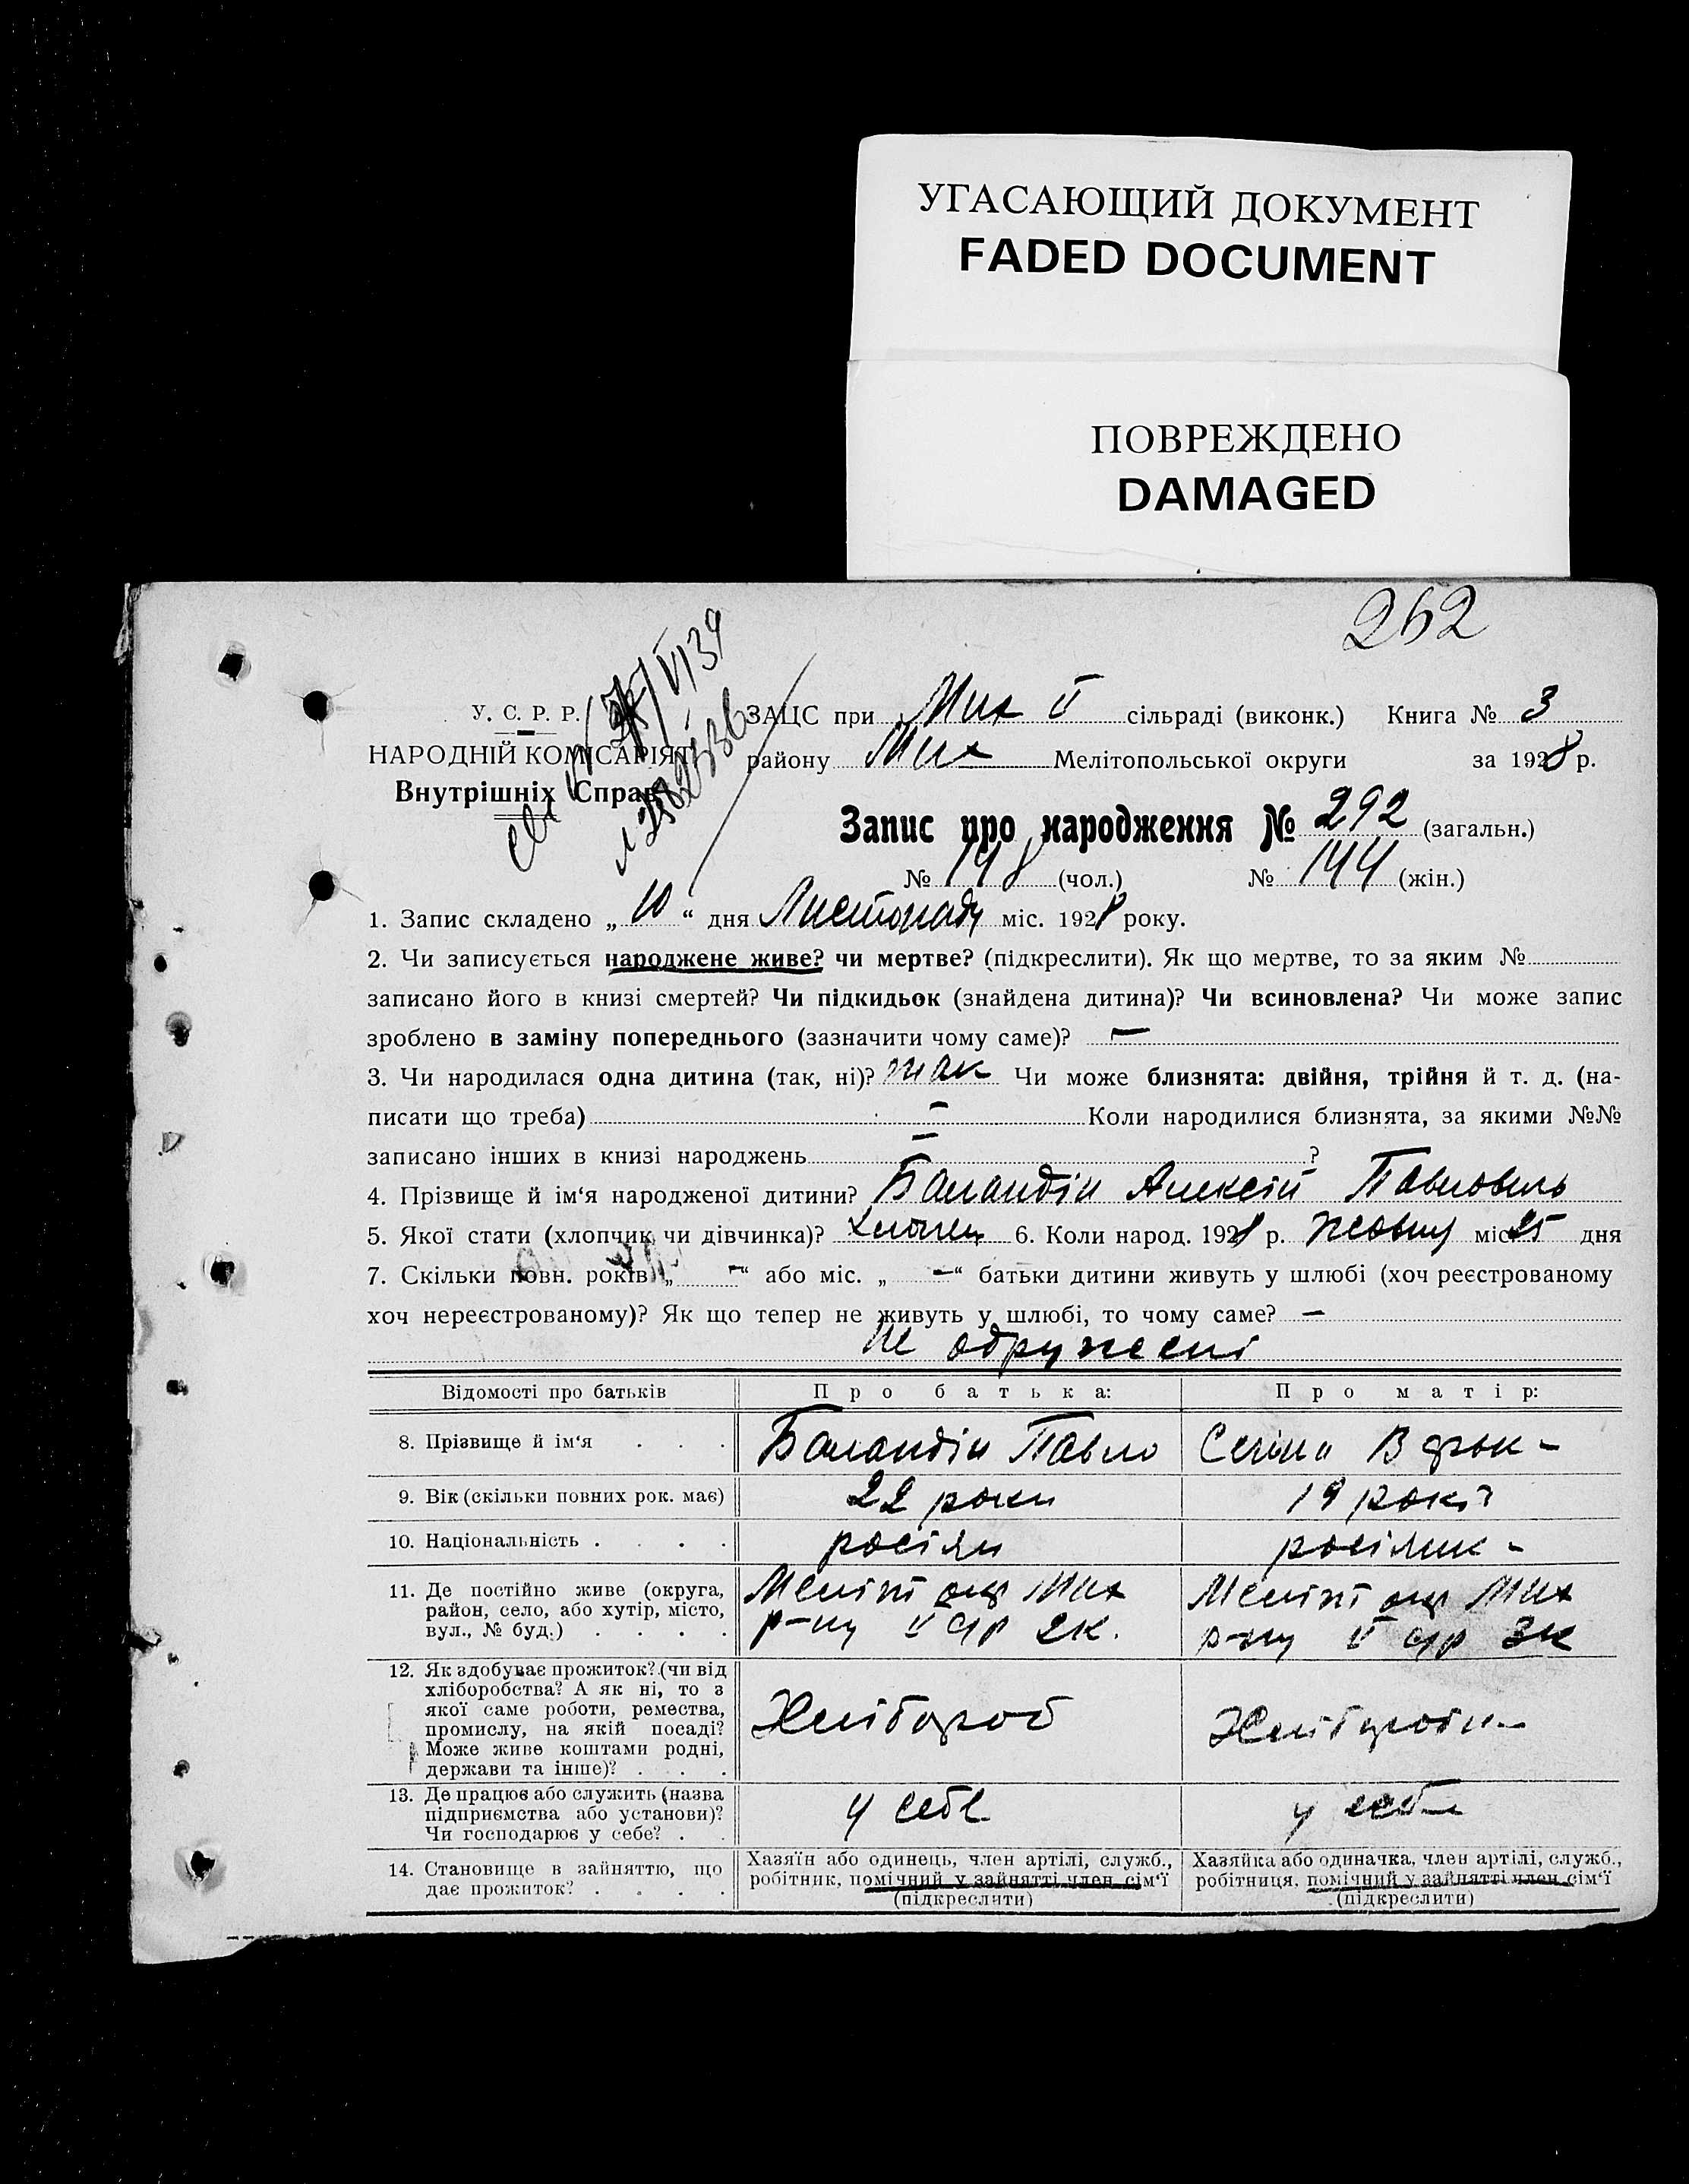 УГАСАЮЩИЙ ДОКУМЕНТ
FADED DOCUMENT
ПОВРЕЖДЕНО
DAMAGED
262
У. С. Р. Р.
НАРОДНІЙ КОМІСАРІЯТ
Внутрішніх Справ
ЗАЦС при Мих ІІ сільраді (виконк.) Книга № 3
району Мих Мелітопольської округи за 1928 р.
Запис про народження № 292 (загальн.)
№ 148 (чол.) № 144 (жін.)
1. Запис складено „ 10 “ дня Листопаду міс. 1928 року.
2. Чи записується народжене живе? чи мертве? (підкреслити). Як що мертве, то за яким №
записано його в книзі смертей? Чи підкидьок (знайдена дитина)? Чи всиновлена? Чи може запис
зроблено в заміну попереднього (зазначити чому саме)? —
3. Чи народилася одна дитина (так, ні)? так Чи може близнята: двійня, трійня й т. д. (на-
писати що треба) — Коли народилися близнята, за якими №№
записано інших в книзі народжень — ?
4. Прізвище й ім‘я народженої дитини? Баландін Алексій Павлович
5. Якої стати (хлопчик чи дівчинка)? Хлопец 6. Коли народ. 1928 р. Жовтн міс 25 дня
7. Скільки повн. років „ — “ або міс. „ — “ батьки дитини живуть у шлюбі (хоч реєстрованому
хоч нереєстрованому)? Як що тепер не живуть у шлюбі, то чому саме? —
Не одружені
Відомості про батьків Про батька: Про матір:
8. Прізвище й ім‘я . . . Баландін Павло
9. Вік (скільки повних рок. має) 22 роки 19 рокі
10. Національність . . . . росіян росіянк-
11. Де постійно живе (округа,
район, село, або хутір, місто,
вул., № буд.) . . . .
Меліт окр Мих
р-ну ІІ с/р 2к.
Меліт окр Мих
р-ну ІІ с/р 3к
12. Як здобуває прожиток? (чи від
хліборобства? А як ні, то з
якої саме роботи, ремества,
промислу, на якій посаді?
Може живе коштами родні,
держави та інше)? . . .
Хлібороб
Хлібороби-
13. Де працює або служить (назва
підприємства або установи)?
Чи господарює у себе? . .
у себе
у себе
14. Становище в зайняттю, що
дає прожиток? . . . .
Хазяїн або одинець, член артілі, служб.,
робітник, помічний у зайнятті член сім‘ї
(підкреслити)
Хазяйка або одиначка, член артілі, служб.,
робітниця, помічний у зайнятті член сім‘ї
(підкреслити)